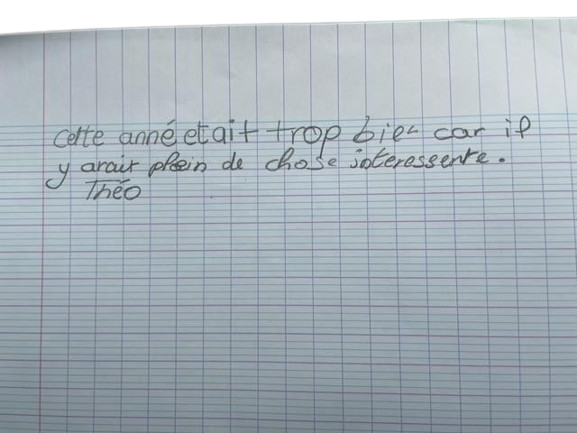 cette anné etait trop bien car il
y avait plein de chose interessente.
Théo